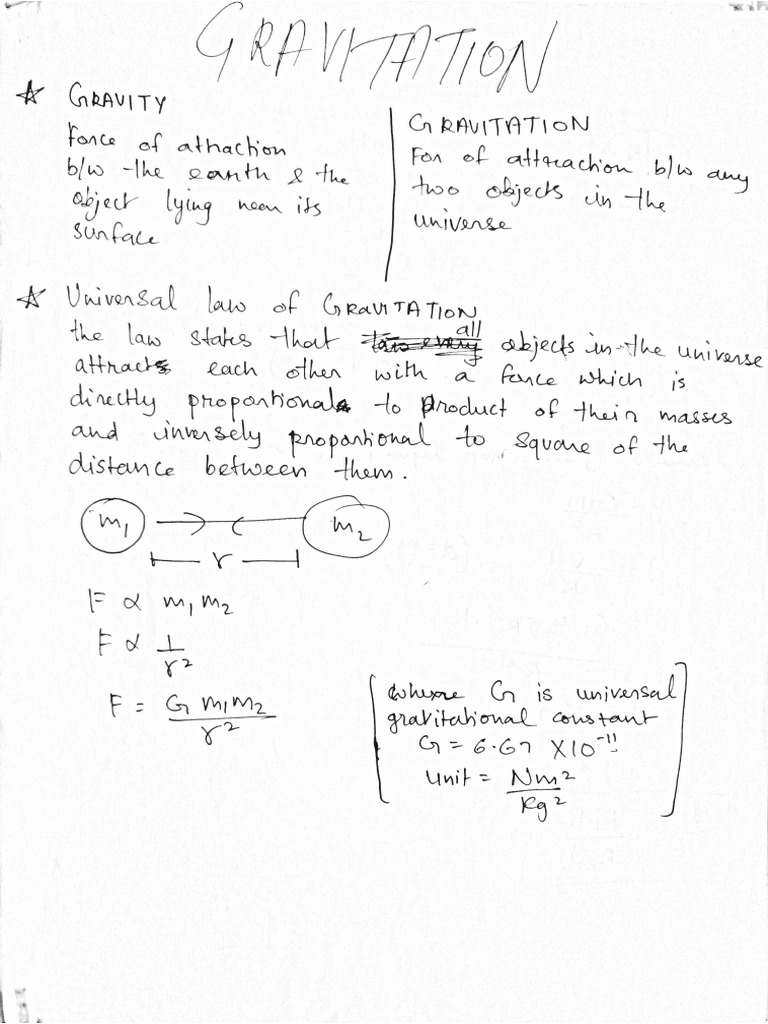 GRAVITATION
☆ GRAVITY
Force of attraction
b/w the earth & the
object lying near its
surface
GRAVITATION
For of attraction b/w any
two objects in the
universe
☆ Universal law of GRAVITATION
the law states that all objects in the universe
attracts each other with a force which is
directly proportional to product of their masses
and inversely proportional to square of the
distance between them.
m₁ m₂
r
F ∝ m₁m₂
F ∝ 1/r²
F = G m₁m₂/r²
where G is universal
gravitational constant
G = 6.67 × 10⁻¹¹
Unit = Nm²/Kg²